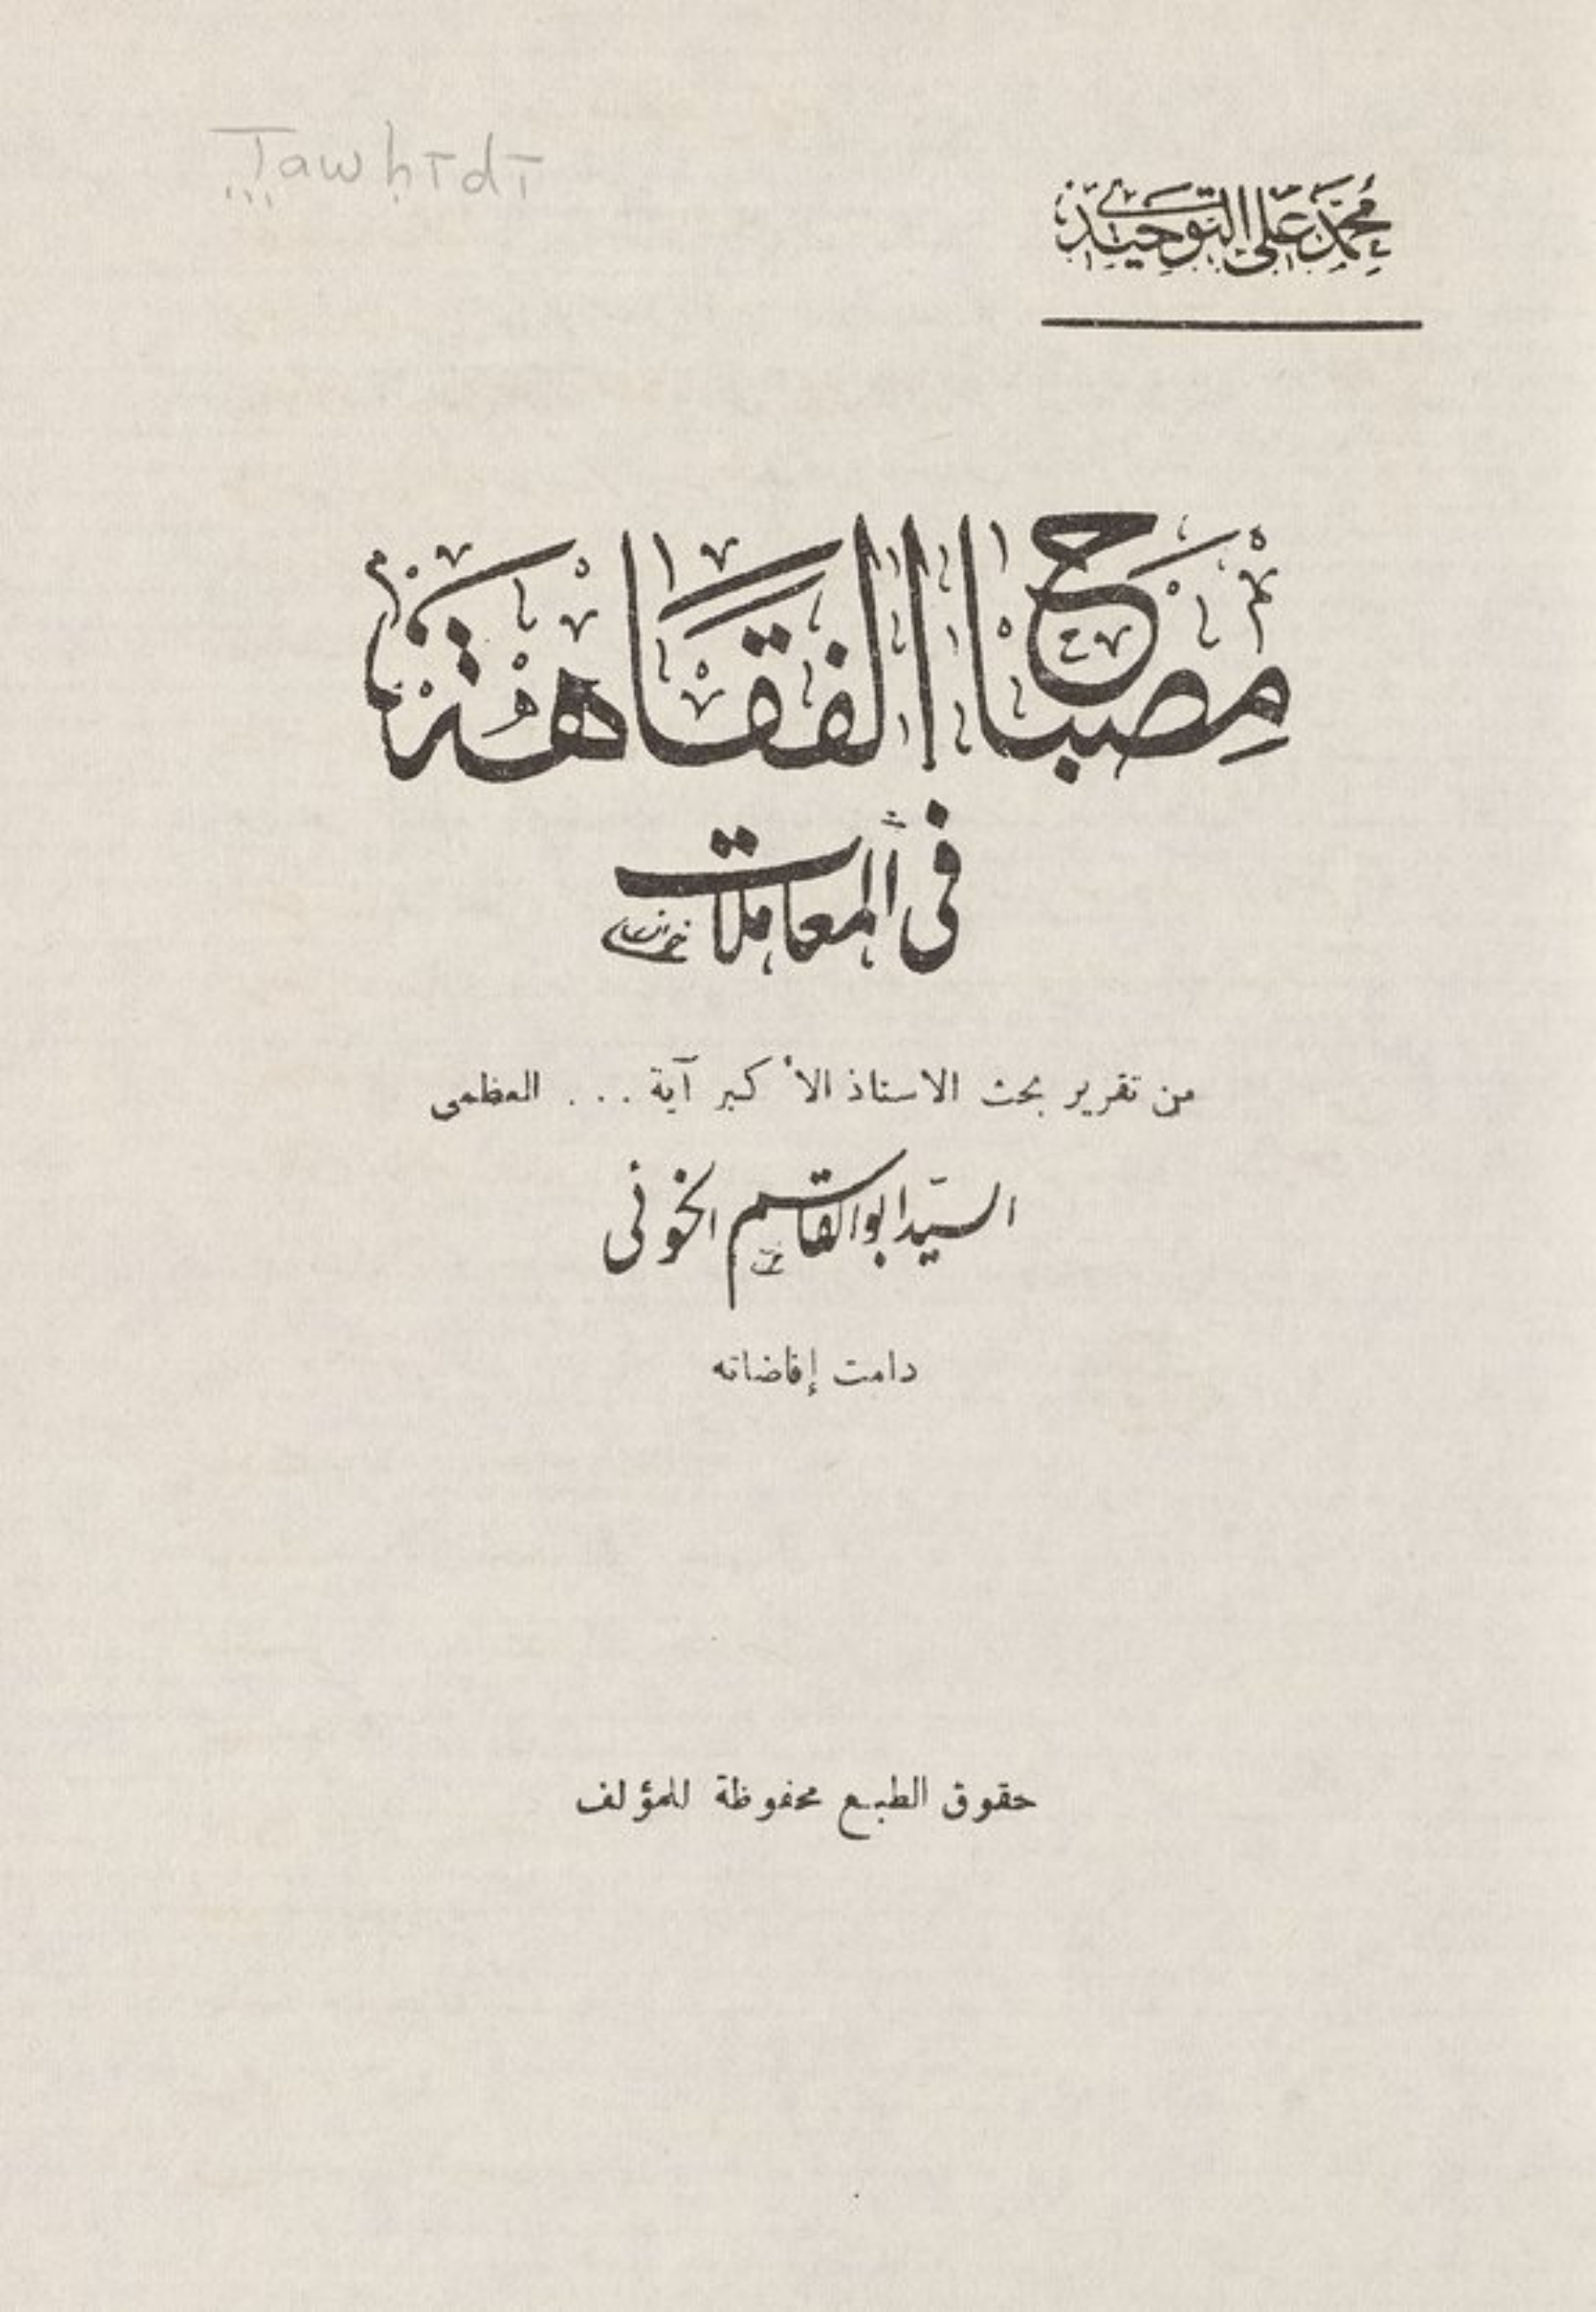 Tawḥīdī
محمد علي التوحيدي
مِصبَاح الفقَاهَة
في المعاملات
من تقرير بحث الاستاذ الأكبر آية ... العظمى
السيّد ابوالقاسم الخوئي
دامت إفاضاته
حقوق الطبع محفوظة للمؤلف